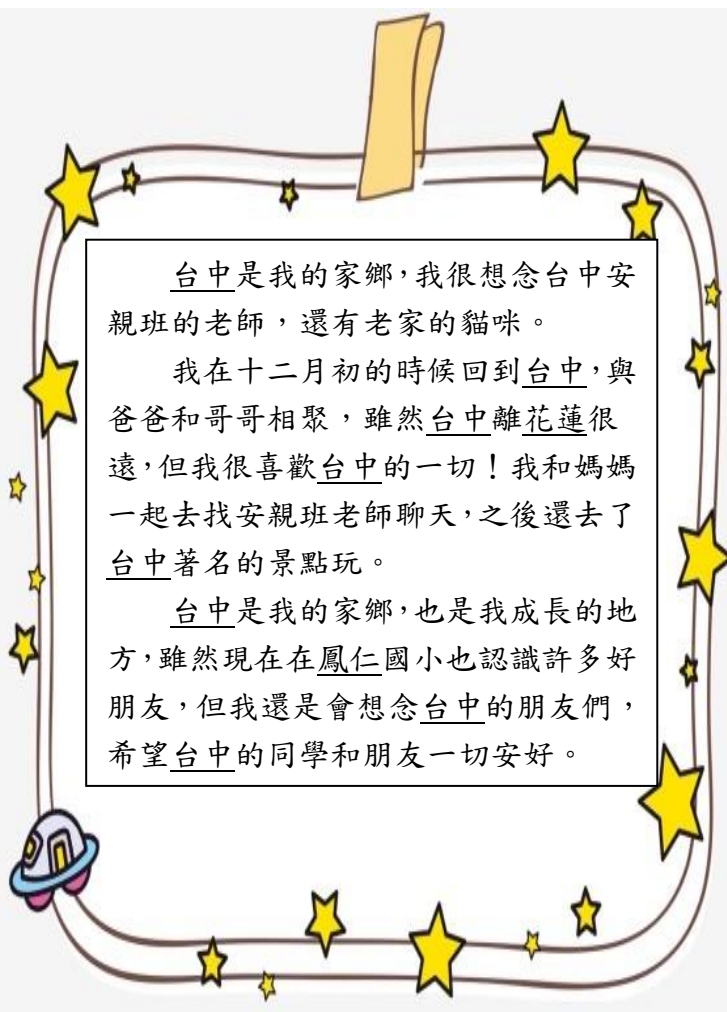 台中是我的家鄉，我很想念台中安
親班的老師，還有老家的貓咪。
我在十二月初的時候回到台中，與
爸爸和哥哥相聚，雖然台中離花蓮很
遠，但我很喜歡台中的一切！我和媽媽
一起去找安親班老師聊天，之後還去了
台中著名的景點玩。
台中是我的家鄉，也是我成長的地
方，雖然現在在鳳仁國小也認識許多好
朋友，但我還是會想念台中的朋友們，
希望台中的同學和朋友一切安好。